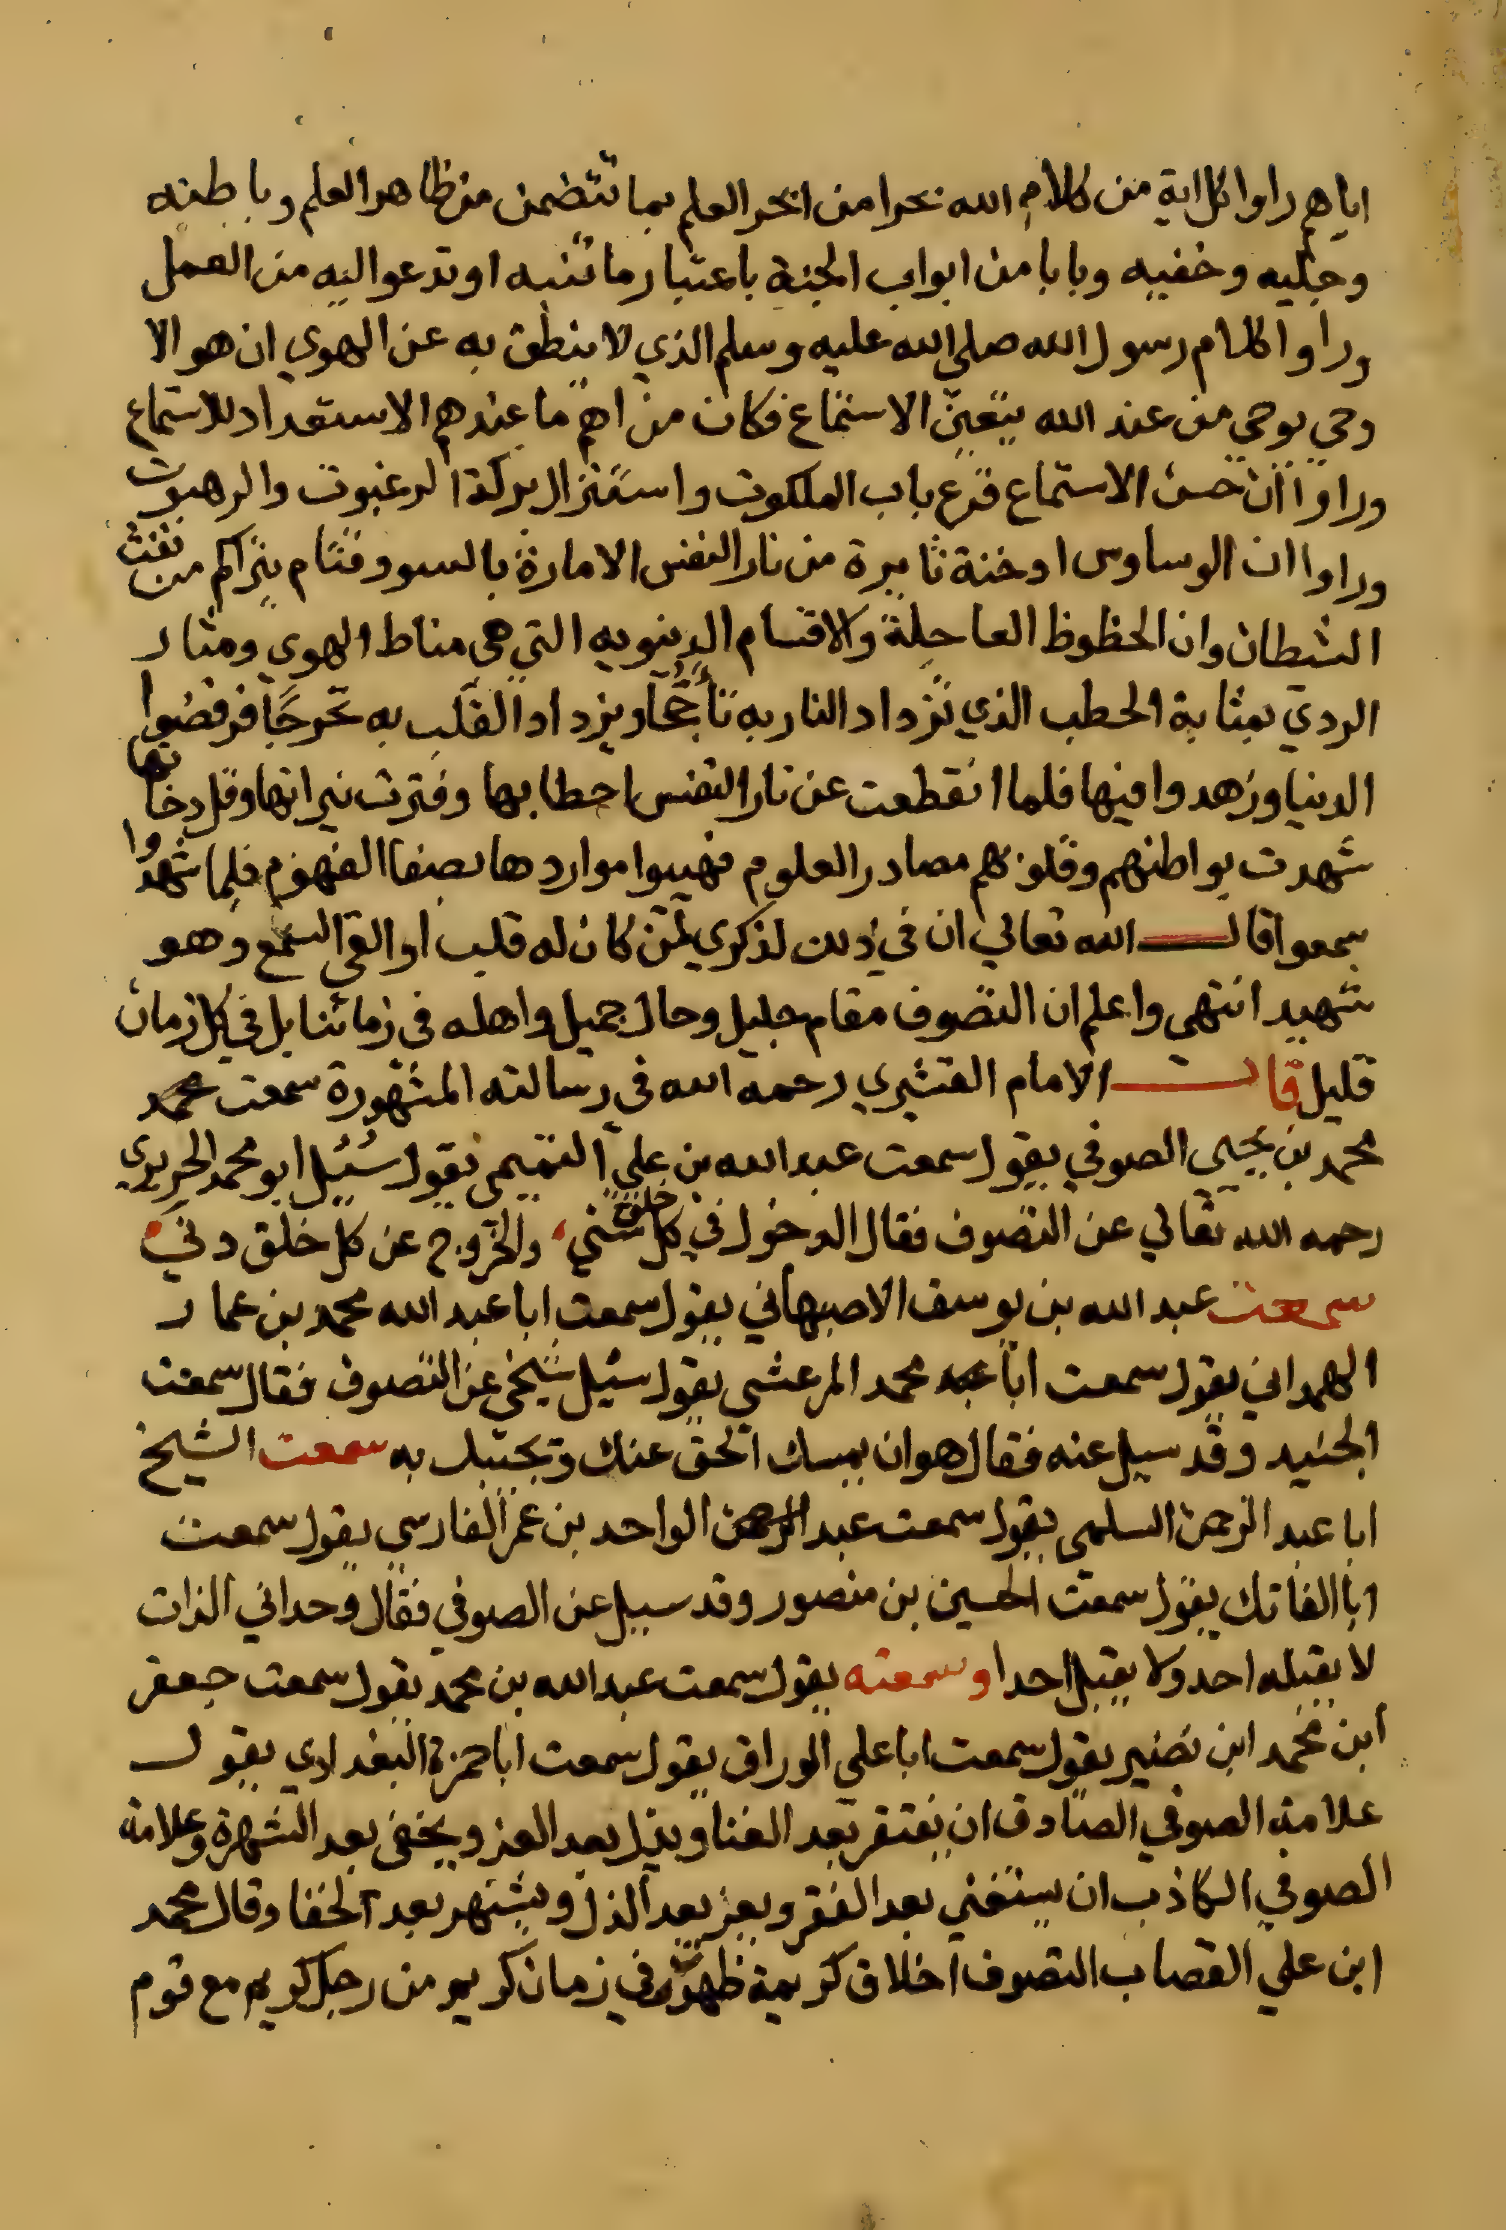 اياهم راوا كل اية من كلام الله بحرا من ابحر العلم بما تتضمن من ظاهر العلم وباطنه
وجليه وخفيه وبابا من ابواب الجنة باعتبار ما تنبه او تدعوا اليه من العمل
وراوا كلام رسول الله صلى الله عليه وسلم الذي لا ينطق به عن الهوي ان هو الا
وحي يوحي من عند الله يتعين الاستماع فكان من اهم ما عندهم الاستعداد للاستماع
وراوا ان حسن الاستماع قرع باب الملكوت واستنزال بركة الرغبوت والرهبوت
وراوا ان الوساوس ادخنة ثايرة من نار النفس الامارة بالسوء وقتام يتراكم من نفث
الشيطان وان الحظوظ العاجلة والاقسام الدنيويه التي هي مناط الهوي ومثار
الردي بمثابة الحطب الذي تزداد النار به تأججا ويزداد القلب به تحرجا فرفضوا
الدنيا وزهدوا فيها فلما انقطعت عن نار النفس احطابها وفترت نيرانها وقل دخانها
شهدت بواطنهم وقلوبهم مصادر العلوم فهيوا مواردها بصفا الفهوم فلما شهدوا
سمعوا قال الله تعالي ان في ذلك لذكري لمن كان له قلب او القي السمع وهو
شهيد انتهي واعلم ان التصوف مقام جليل وحال جميل واهله في زماننا بل في كل زمان
قليل قال الامام القشيري رحمه الله في رسالته المشهورة سمعت محمد
محمد بن يحيي الصوفي يقول سمعت عبد الله بن علي التميمي يقول سُئيل ابو محمد الجريري
رحمه الله تعالي عن التصوف فقال الدخول في كل خلق سني والخروج عن كل خلق دني
سمعت عبد الله بن يوسف الاصبهاني يقول سمعت ابا عبد الله محمد بن عمار
الهمداني يقول سمعت ابا محمد المرعشي يقول سئيل شيخي عن التصوف فقال سمعت
الجنيد وقد سيل عنه فقال هو ان يميتك الحق عنك ويحييك به سمعت الشيخ
ابا عبد الرحمن السلمي يقول سمعت عبد الواحد بن عمر الفارسي يقول سمعت
ابا الفاتك يقول سمعت الحسين بن منصور وقد سييل عن الصوفي فقال وحداني الذات
لا يقبله احد ولا يقبل احدا وسمعته يقول سمعت عبد الله بن محمد يقول سمعت جعفر
ابن محمد ابن نصير يقول سمعت ابا علي الوراق يقول سمعت ابا حمزة البغدادي يقول
علامة الصوفي الصادق ان يفتقر بعد الغنا ويذل بعد العز ويخفى بعد الشهرة وعلامة
الصوفي الكاذب ان يستغني بعد الفقر ويعز بعد الذل ويشتهر بعد الخفا وقال محمد
ابن علي القصاب التصوف اخلاق كريمة ظهرت في زمان كريم من رجل كريم مع قوم